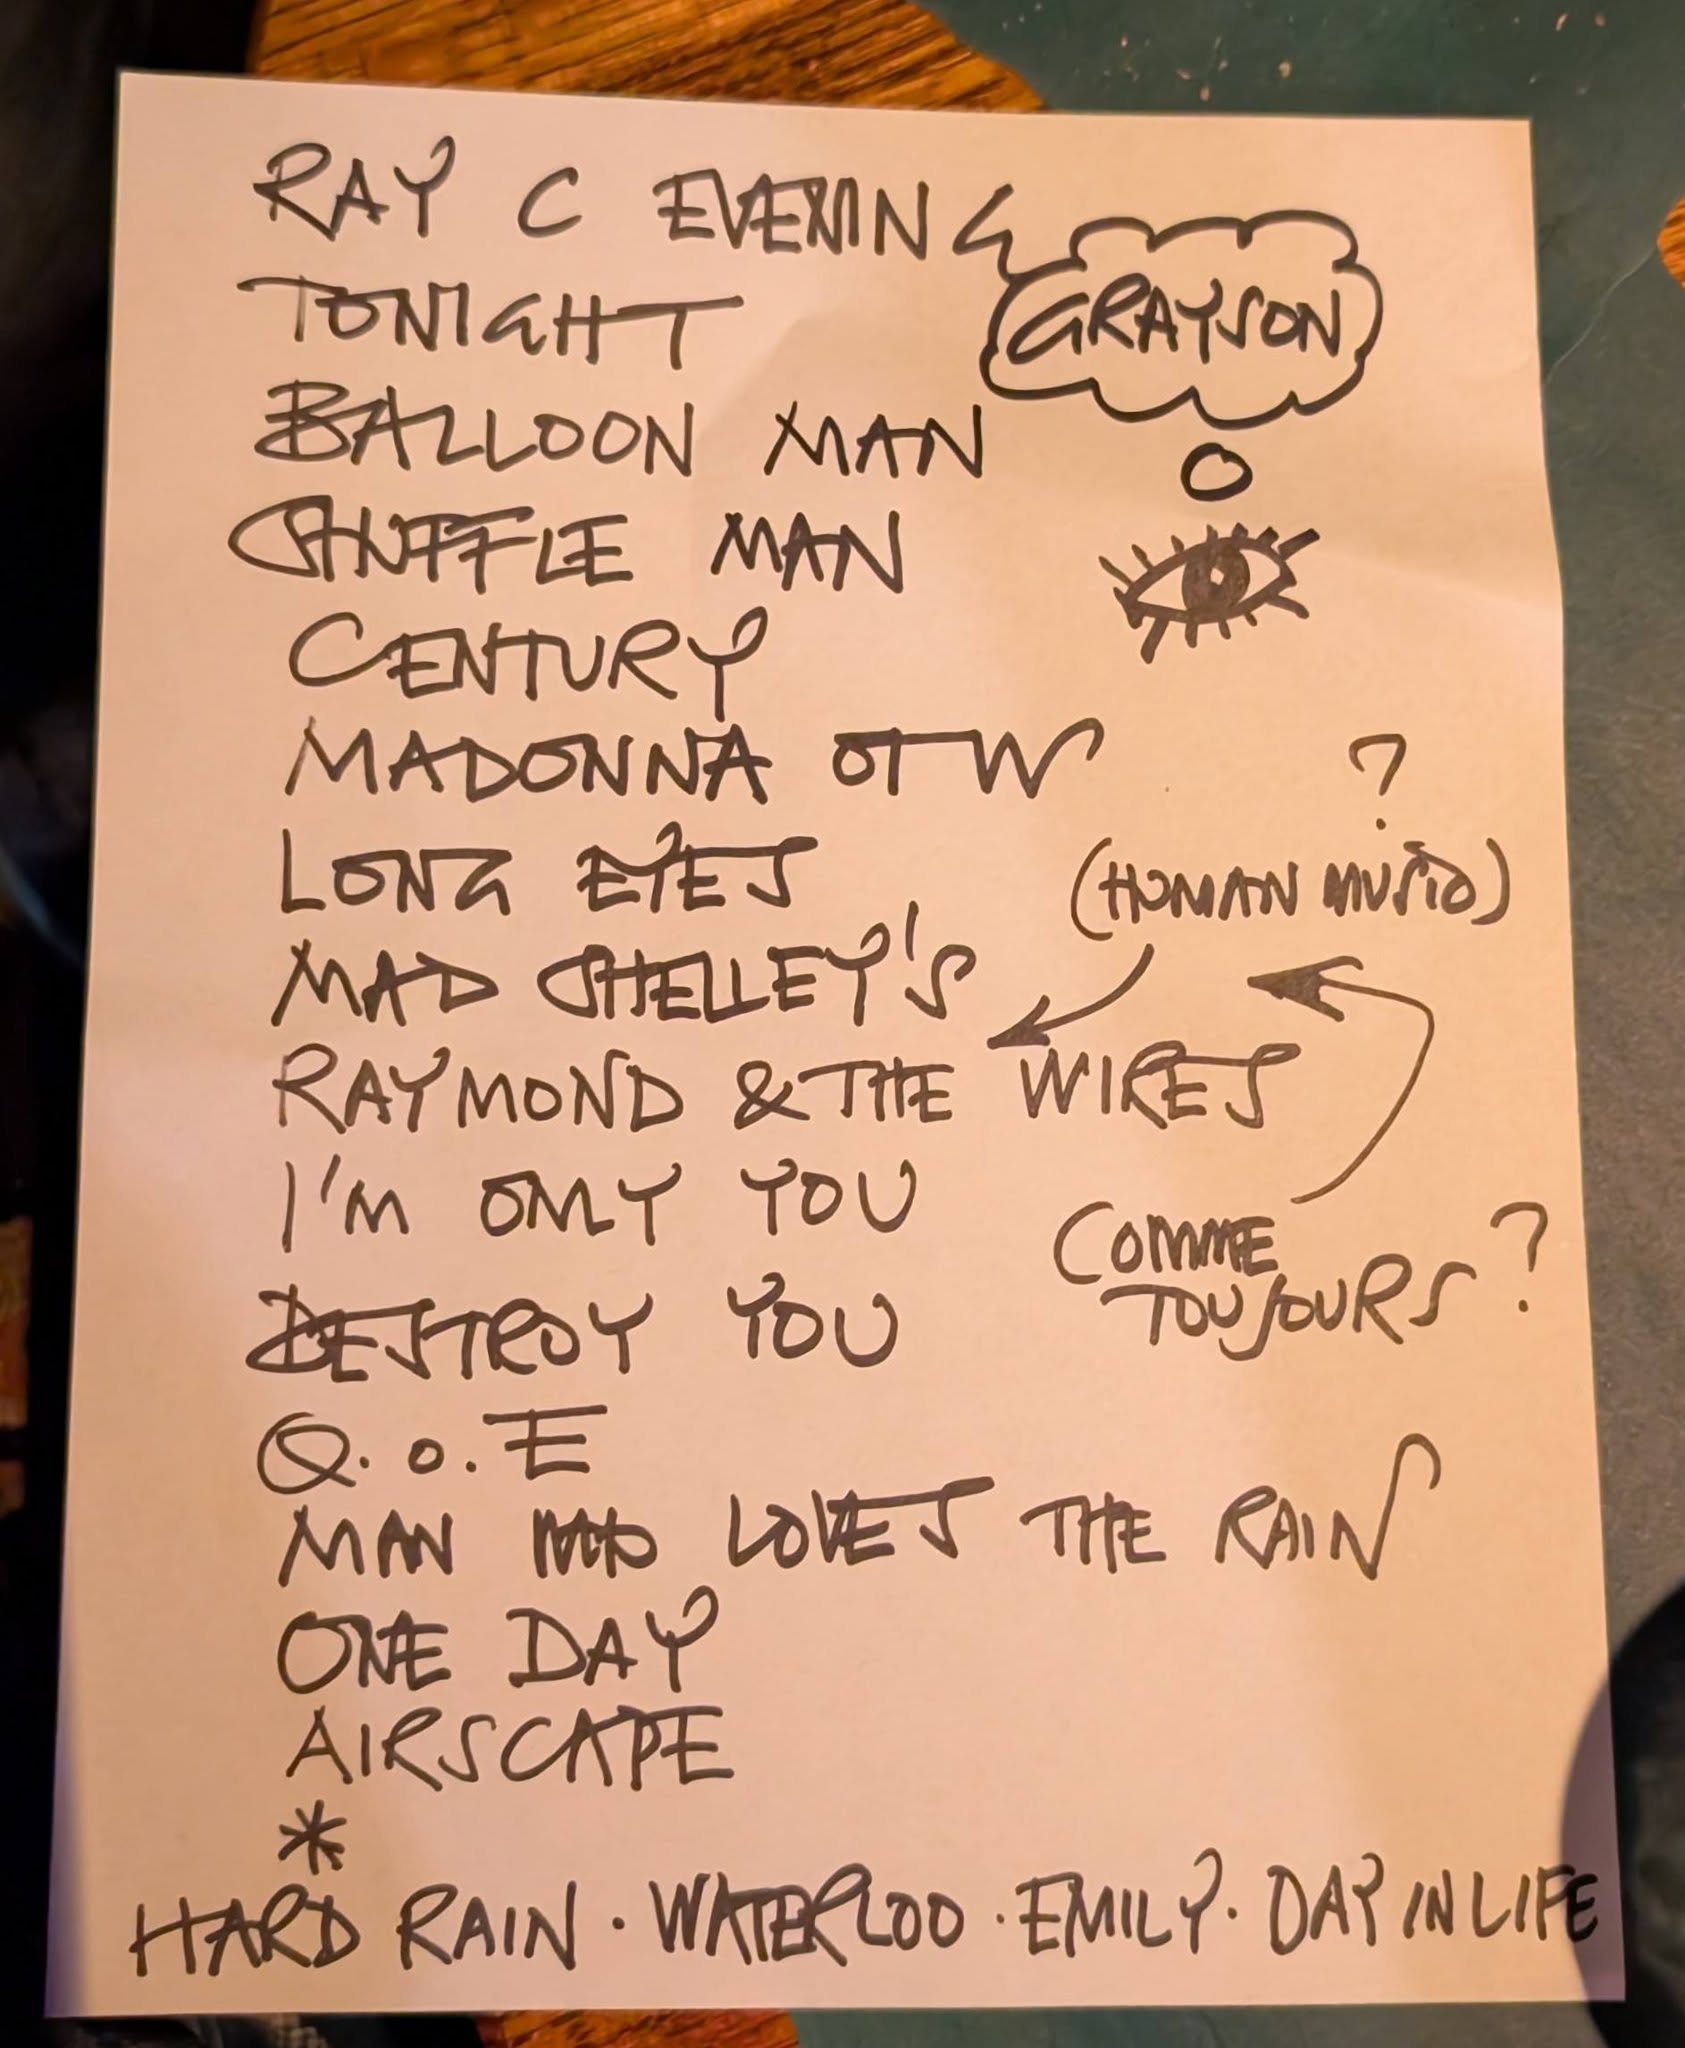 RAY C EVENING
GRAYSON
TONIGHT
BALLOON MAN
SHUFFLE MAN
CENTURY
MADONNA OTW
LONG EYES
?
(HUMAN MUSIC)
MAD SHELLEY'S
RAYMOND & THE WIRES
I'M ONLY YOU
COMME
TOUJOURS?
DESTROY YOU
Q.O.E
MAN LOVES THE RAIN
ONE DAY
AIRSCAPE
*
HARD RAIN · WATERLOO · EMILY · DAY IN LIFE